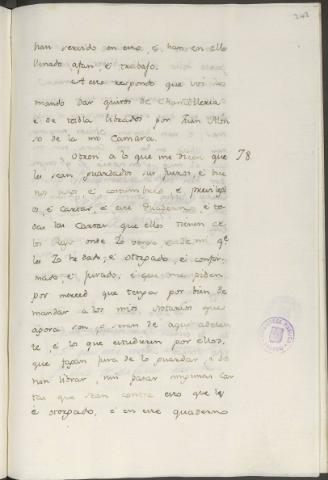 242
han servido en esso, é han en ello
llevado afan, é trabajo.
A esso respondo que vos
mando dar quitos de Chancilleria
é de tabla librados por Juan Alfon
so de la mi Camara.
Otrosi a lo que me dicen que 78
les sean guardados sus fueros, é bue
nos usos é costumbres é previlegi
os, é cartas, é este quaderno, é to
das las cartas que ellos tienen de
los Reyes onde Yo vengo é de mi qe
les Yo he dado, é otorgado, é confir
mado, é jurado, é que me piden
por merced que tenga por bien de
mandar a los mios Notarios que
agora son, é seran de aqui adelan
te, é los que estudieren por ellos,
que fagan jura de lo guardar é de
non librar, nin pasar ningunas car
tas que sean contra esto que les
é otorgado, é en este quaderno